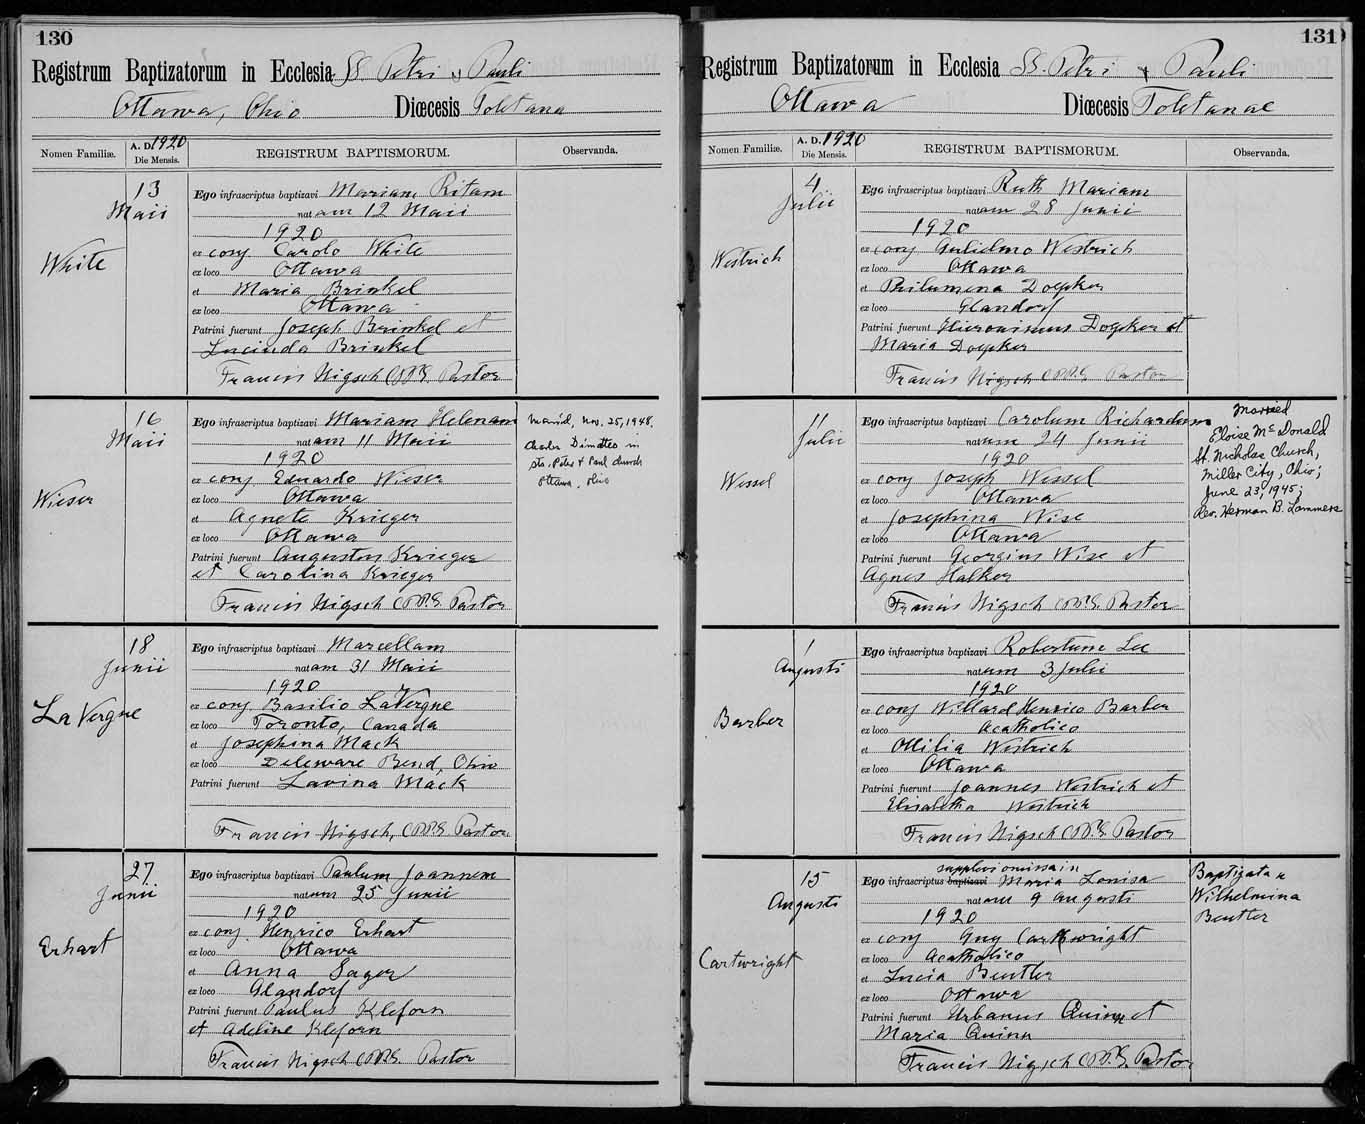 130
Registrum Baptizatorum in Ecclesia SS. Petri & Pauli
Ottawa, Ohio Diœcesis Toletana
Nomen Familiæ. A. D. 1920 Die Mensis. REGISTRUM BAPTISMORUM. Observanda.
13 Maii
White
Ego infrascriptus baptizavi Mariam Ritam
natam 12 Maii
1920
ex conj Carolo White
ex loco Ottawa
et Maria Brinkel
ex loco Ottawa
Patrini fuerunt Joseph Brinkel et
Lucinda Brinkel
Francis Nigsch CPPS. Pastor
16 Maii
Wieser
Ego infrascriptus baptizavi Mariam Helenam
natam 11 Maii
1920
ex conj Eduardo Wieser
ex loco Ottawa
et Agnete Krieger
ex loco Ottawa
Patrini fuerunt Augustus Krieger
et Carolina Krieger
Francis Nigsch CPP.S. Pastor
Married, Nov. 25, 1948.
Charles Dimatteo in
Sts. Peter & Paul church
Ottawa, Ohio
18 Junii
LaVergne
Ego infrascriptus baptizavi Marcellam
natam 31 Maii
1920
ex conj Basilio LaVergne
ex loco Toronto, Canada
et Josephina Mack
ex loco Deleware Bend, Ohio
Patrini fuerunt Lavina Mack
Francis Nigsch, CPP.S Pastor
27 Junii
Erhart
Ego infrascriptus baptizavi Paulum Joannem
natum 25 Junii
1920
ex conj Henrico Erhart
ex loco Ottawa
et Anna Sager
ex loco Glandorf
Patrini fuerunt Paulus Kleforn
et Adeline Kleforn
Francis Nigsch CPP.S. Pastor
131
Registrum Baptizatorum in Ecclesia SS. Petri & Pauli
Ottawa Diœcesis Toletanae
Nomen Familiæ. A. D. 1920 Die Mensis. REGISTRUM BAPTISMORUM. Observanda.
4 Julii
Westrich
Ego infrascriptus baptizavi Ruth Mariam
natam 28 Junii
1920
ex conj Gulielmo Westrich
ex loco Ottawa
et Philumena Doepker
ex loco Glandorf
Patrini fuerunt Hieronimus Doepker et
Maria Doepker
Francis Nigsch CPP.S Pastor
11 Julii
Wessel
Ego infrascriptus baptizavi Carolum Richardum
natum 24 Junii
1920
ex conj Joseph Wessel
ex loco Ottawa
et Josephina Wise
ex loco Ottawa
Patrini fuerunt Georgius Wise et
Agnes Halker
Francis Nigsch CPP.S. Pastor
Married
Eloise McDonald
St. Nicholas Church,
Miller City, Ohio;
June 23, 1945;
Rev. Herman B. Lammers
1 Augusti
Barber
Ego infrascriptus baptizavi Robertum Lee
natum 3 Julii
1920
ex conj Willard Henrico Barber
ex loco Acatholico
et Ottilia Westrich
ex loco Ottawa
Patrini fuerunt Joannes Westrich et
Elisabetha Westrich
Francis Nigsch CPP.S Pastor
15 Augusti
Cartwright
supplevi omissa in
Ego infrascriptus baptizavi Maria Louisa
natam 9 Augusti
1920
ex conj Guy Cartwright
ex loco Acatholico
et Lucia Beutler
ex loco Ottawa
Patrini fuerunt Urbanus Quinn et
Maria Quinn
Francis Nigsch CPP.S. Pastor
Baptizata a
Wilhelmina
Beutler